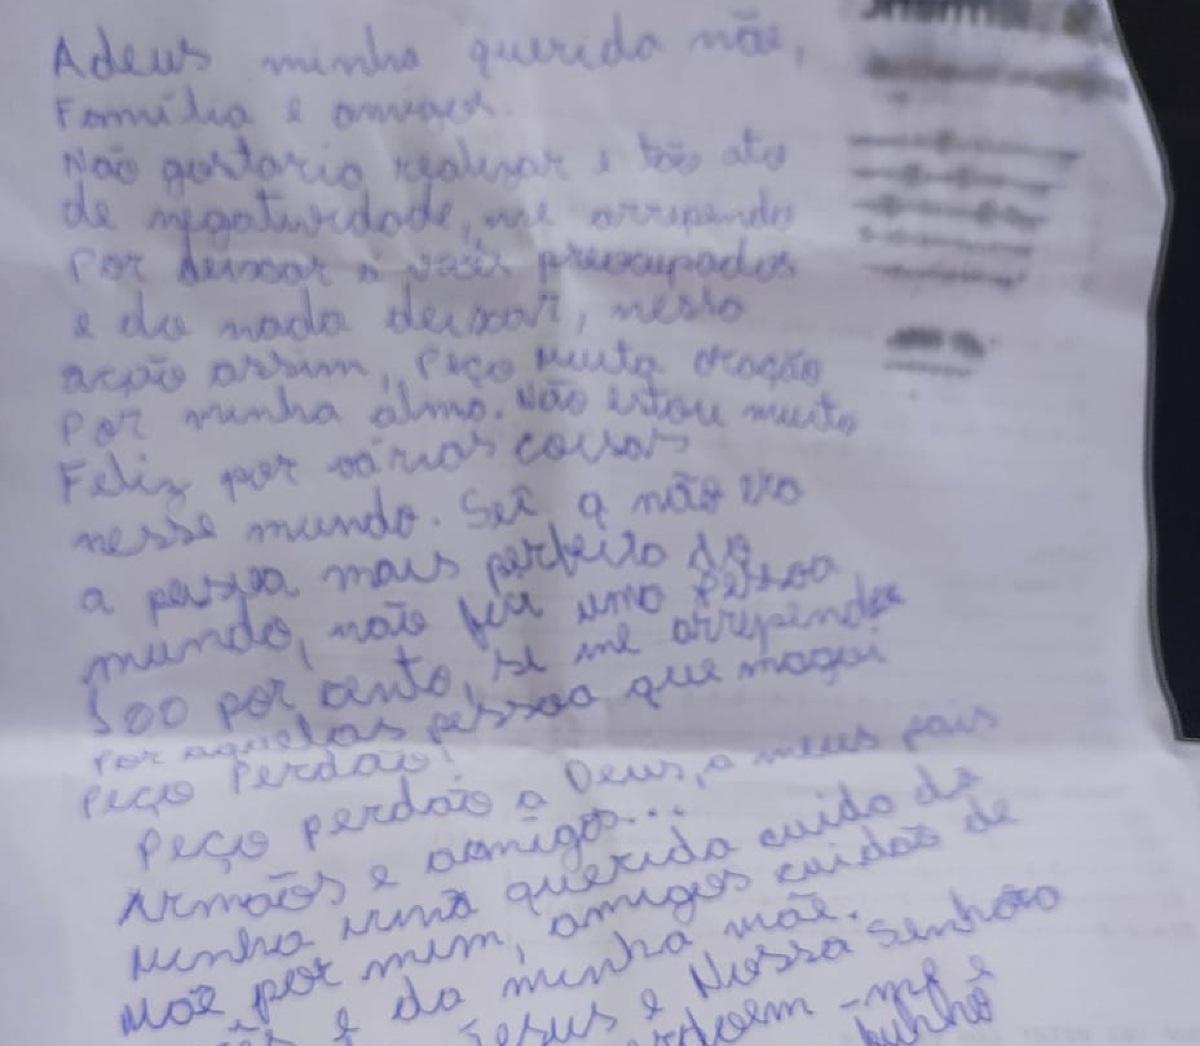 Adeus minha querida mãe,
Família e amigos.
Não gostaria realizar e tão ato
de negatividade, me arrependo
Por deixar a vocês preocupados
e do nada deixar, nessa
ação assim, Peço Muita oração
Por minha alma. Não estou muito
Feliz por várias coisas
nesse mundo. Sei q não
a pessoa mais perfeita do
mundo, não fui uma Pessoa
100 por cento, se me arrependo
Por aquelas pessoa que
Peço Perdão!
Peço perdão a Deus, a meus pais
Irmãos e amigos...
Minha irmã querida cuida da
Mãe por mim, amigos cuidão de
e da minha mãe.
Jesus e Nossa Senhora
-me e